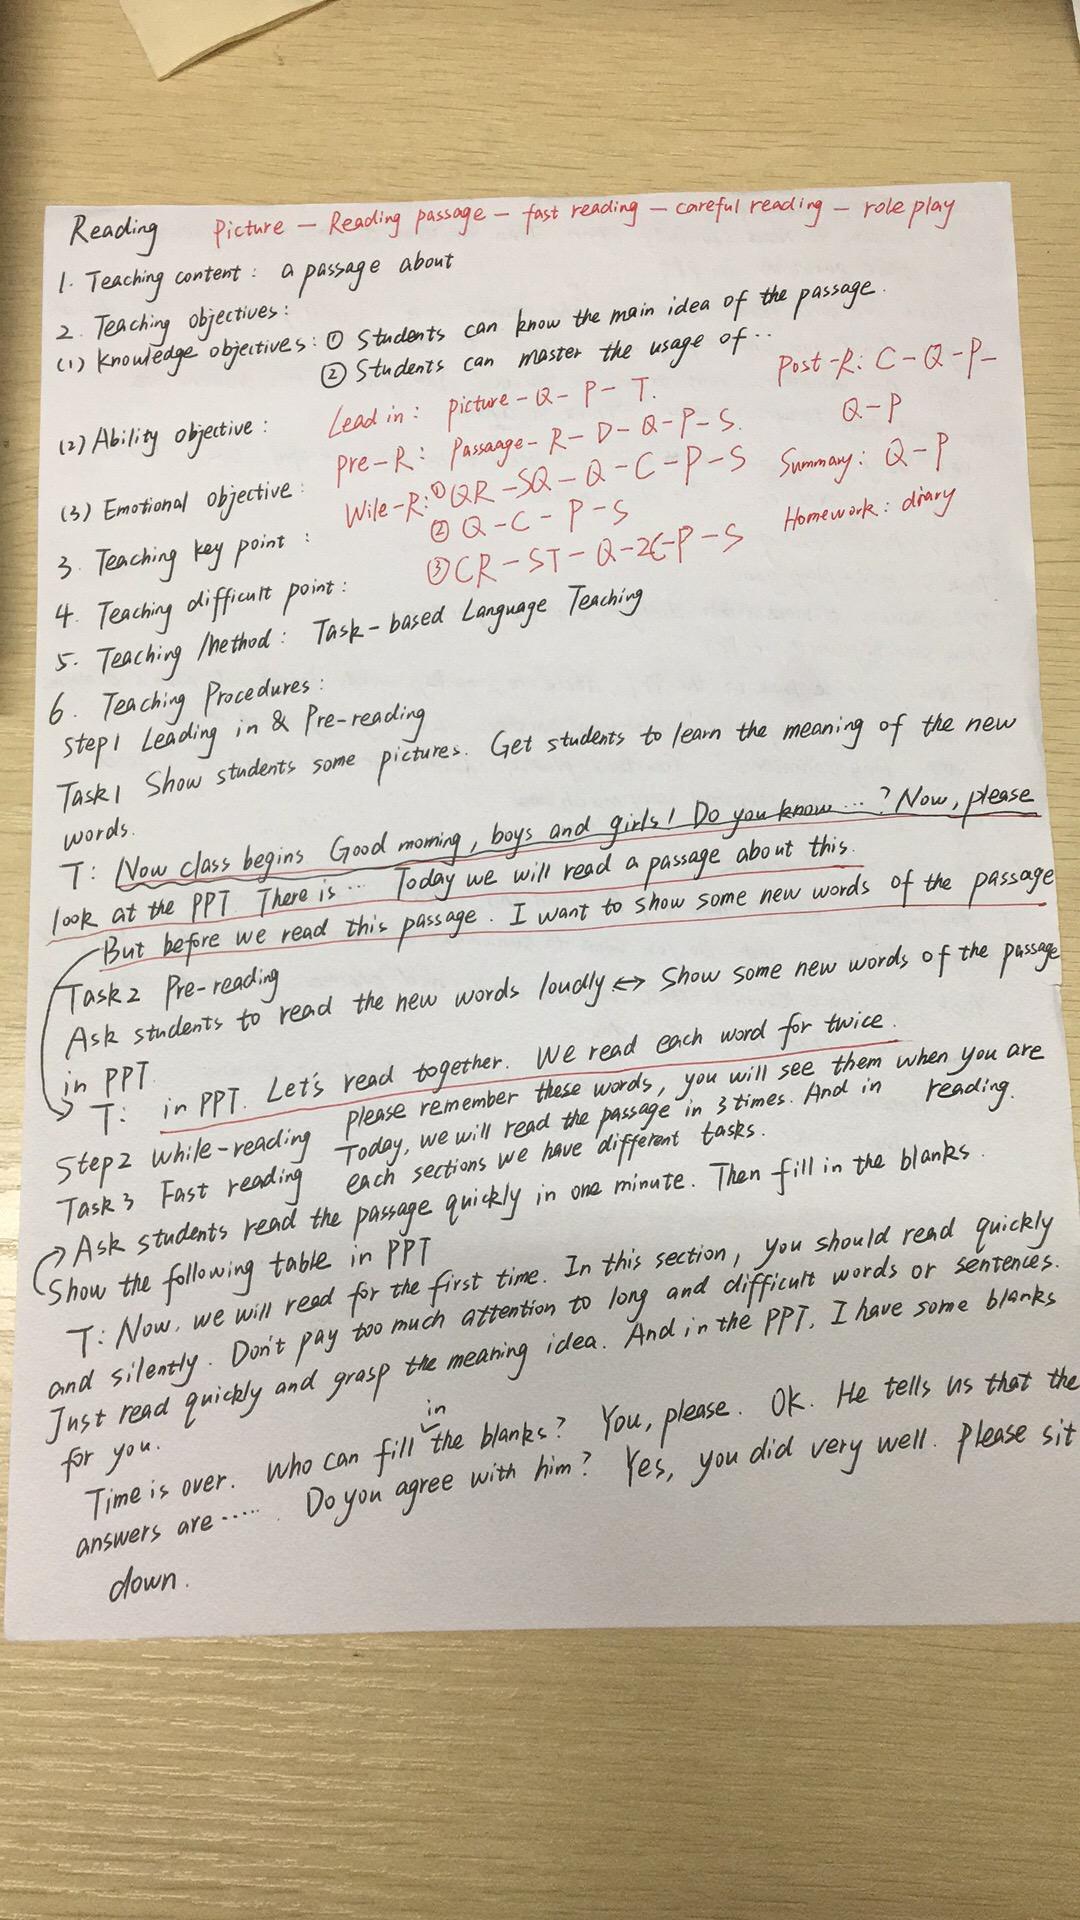 Reading Picture — Reading passage — fast reading — careful reading — role play
1. Teaching content : a passage about
2. Teaching objectives :
(1) Knowledge objectives : ① Students can know the main idea of the passage.
② Students can master the usage of ...
(2) Ability objective :
Lead in : picture - Q - P - T.
Post-R : C - Q - P -
Q - P
Pre-R : Passaage - R - D - Q - P - S.
(3) Emotional objective :
Wile-R : ① QR - SQ - Q - C - P - S
Summary : Q - P
② Q - C - P - S
Homework : diary
3. Teaching key point :
③ CR - ST - Q - 2C - P - S
4. Teaching difficult point :
5. Teaching Method : Task-based Language Teaching
6. Teaching Procedures :
Step1 Leading in & Pre-reading
Task1 Show students some pictures. Get students to learn the meaning of the new
words.
T : Now class begins Good morning, boys and girls! Do you know ... ? Now, please
look at the PPT. There is ... Today we will read a passage about this.
But before we read this passage. I want to show some new words of the passage
Task2 Pre-reading
Ask students to read the new words loudly ↔ Show some new words of the passage
in PPT.
T : in PPT. Let's read together. We read each word for twice.
please remember these words, you will see them when you are
reading.
Step2 While-reading Today, we will read the passage in 3 times. And in
Task3 Fast reading each sections we have different tasks.
Ask students read the passage quickly in one minute. Then fill in the blanks.
Show the following table in PPT
T : Now, we will read for the first time. In this section, you should read quickly
and silently. Don't pay too much attention to long and difficult words or sentences.
Just read quickly and grasp the meaning idea. And in the PPT, I have some blanks
for you.
Time is over. Who can fill in the blanks? You, please. Ok. He tells us that the
answers are ...... Do you agree with him? Yes, you did very well. Please sit
down.